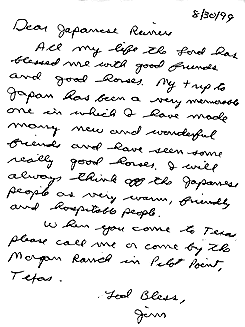 8/30/99
Dear Japanese Reiners
All my life the Lord has
blessed me with good friends
and good horses. My trip to
Japan has been a very memorable
one in which I have made
many new and wonderful
friends and have seen some
really good horses. I will
always think of the Japanese
people as very warm, friendly
and hospitable people.
When you come to Texas
please call me or come by the
Morgan Ranch in Pilot Point,
Texas.
God Bless,
Jim